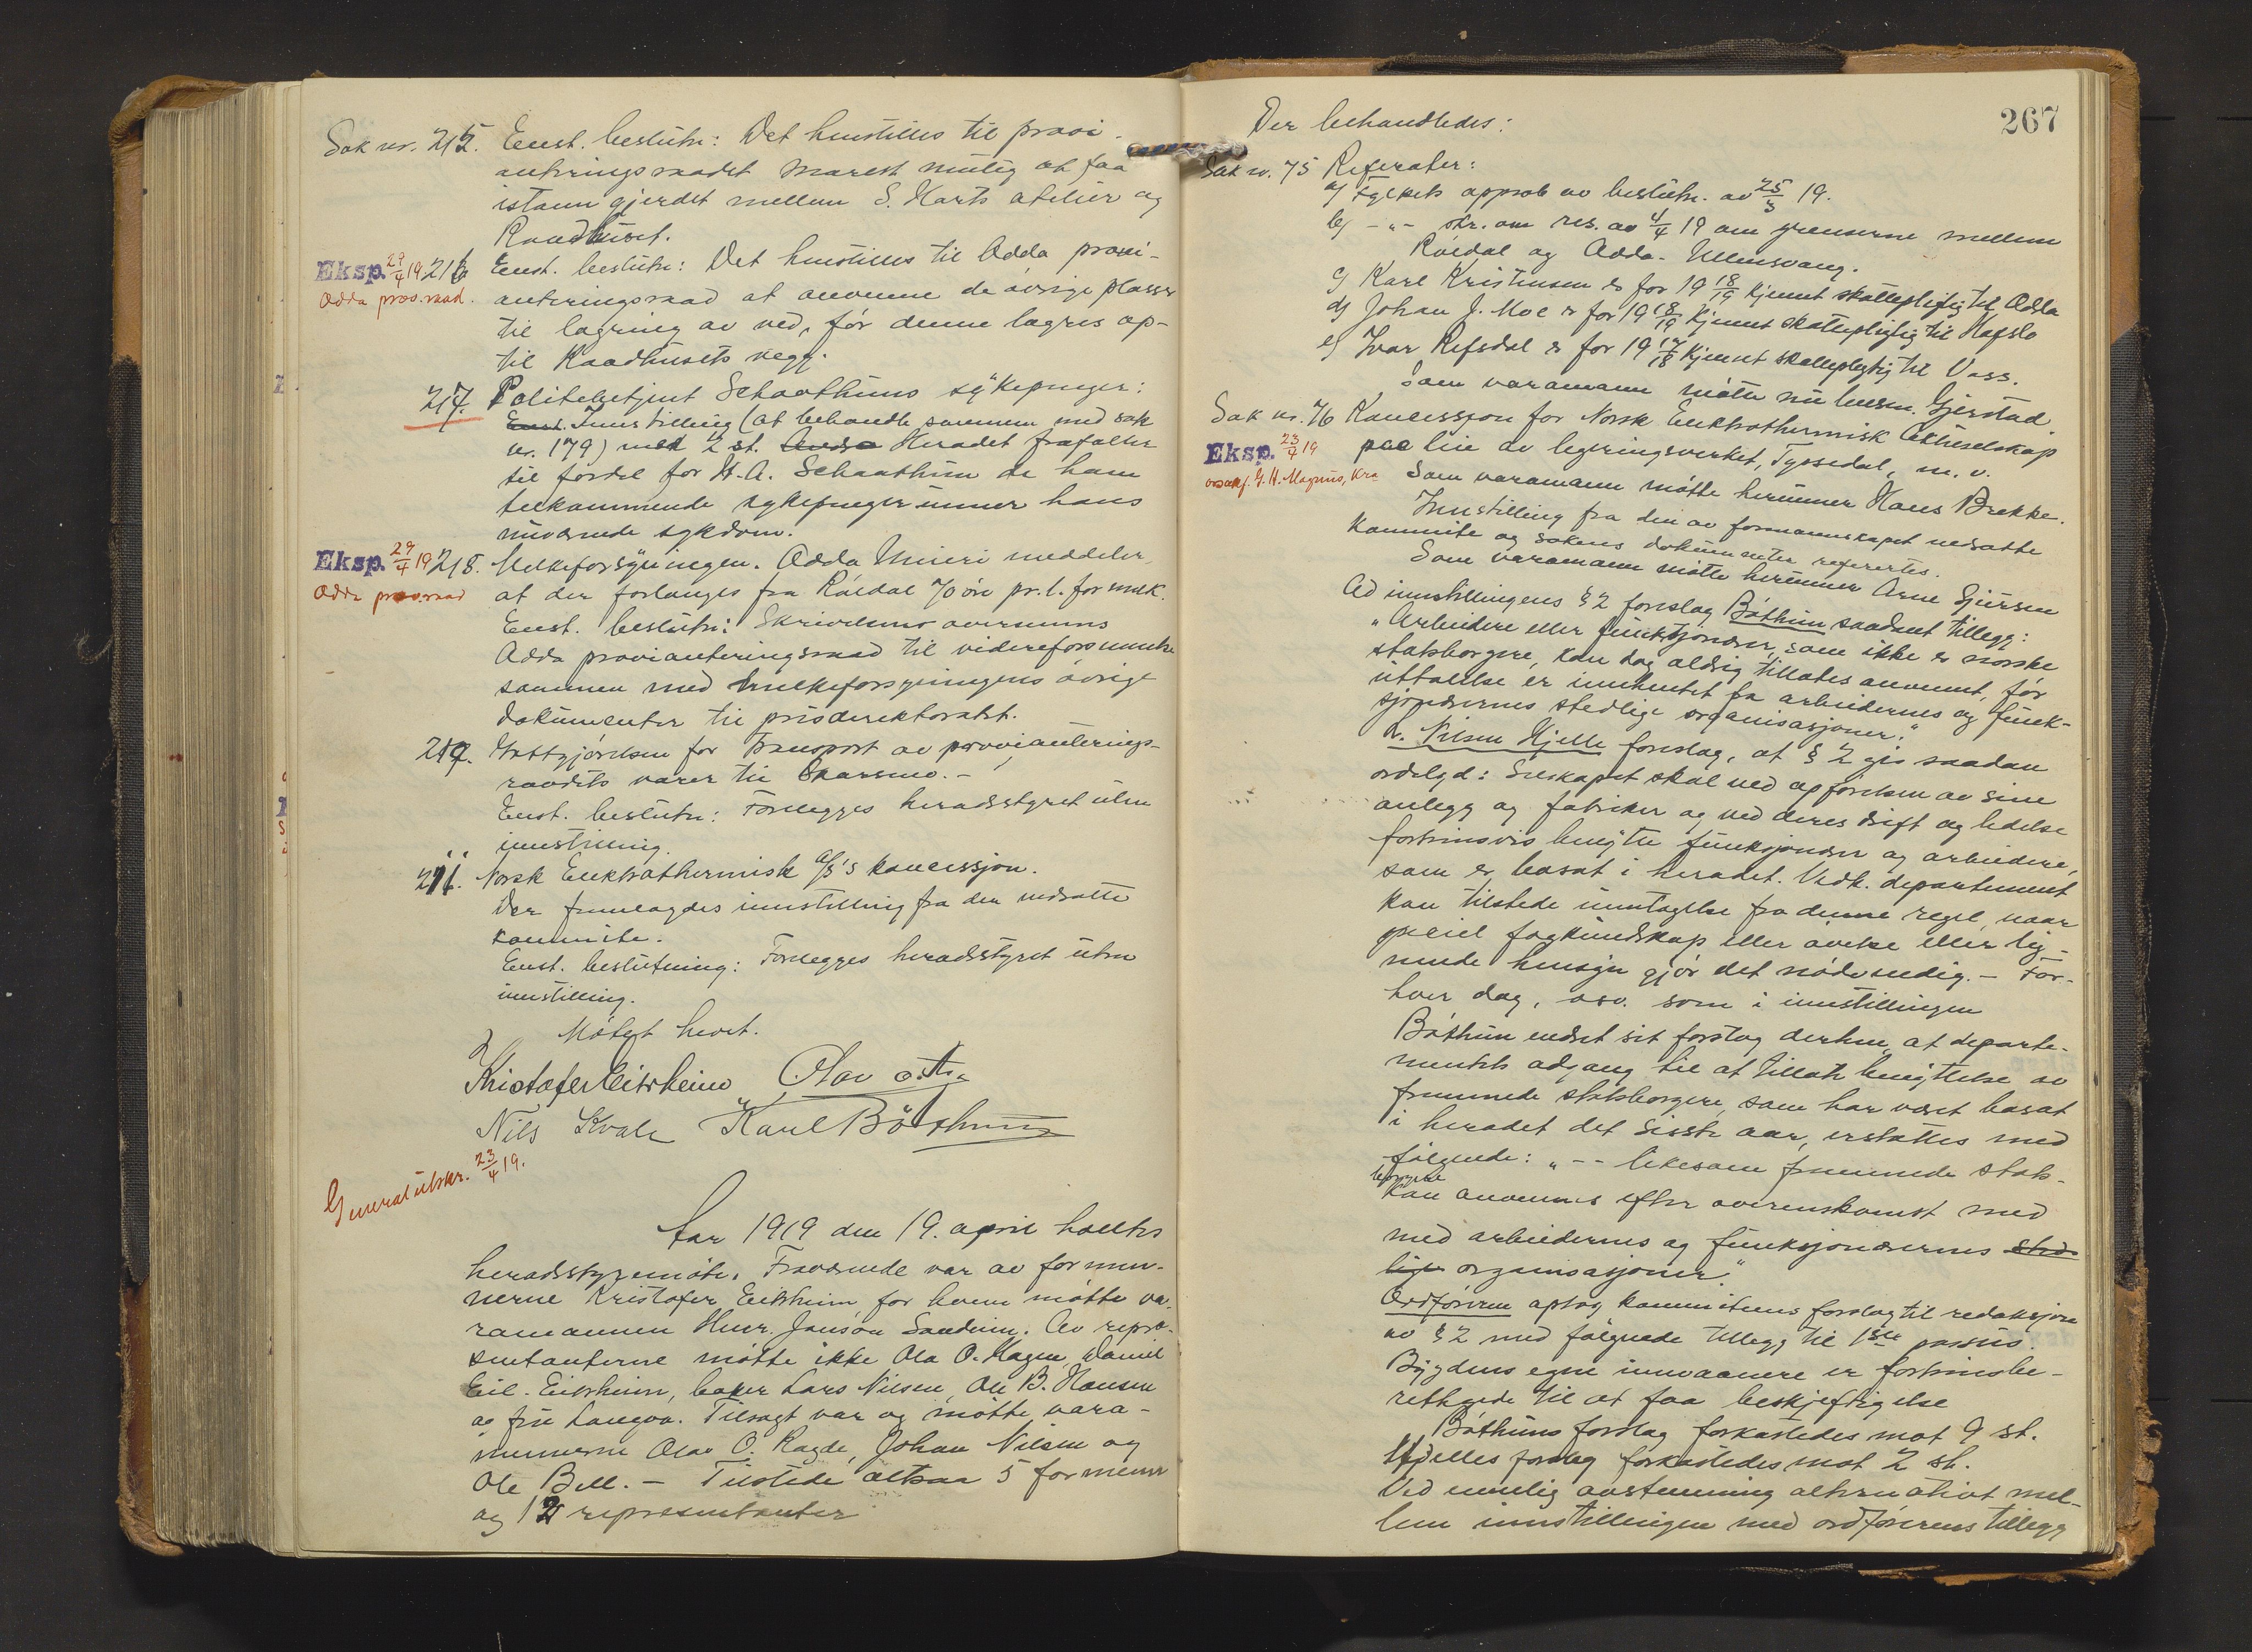 Sak nr. 215. Enst. beslutn: Det henstilles til provi-
anteringsraadet snarest mulig at faa
istann gjerdet mellem S. Harts atelier og
Raadhuset.
Eksp. 29/4 19 216 Enst. beslutn: Det henstilles til Odda provi-
Odda prov.raad. anteringsraad at anvenne de øvrige plasser
til lagring av ved, før denne lagres op-
til Raadhusets vegg.
217. Politibetjent Schaathuns sykepenger:
Enst. Innstilling (at behandle sammen med sak
nr. 179) med 2 st. Heradet frafaller
til fordel for H. A. Schaathun de ham
tilkommende sykepenger unner hans
nuværende sykdom.
Eksp. 29/4 19 218. Melkeforsyningen. Odda Meieri meddeler
Odda prov.raad at der forlanges fra Røldal 70 øre pr. l. for melk.
Enst. beslutn: Skrivelsens oversennes
Odda provianteringsraad til videreforsennelse
sammen med melkeforsyningens øvrige
dokumenter til prisdirektoratet.
219. Gottgjørelsen for transport av provianterings-
raadets varer til Skarsmo. -
Enst. beslutn: Forelegges heradsstyret uten
innstilling.
Norsk Elektrothermisk A/S's koncessjon.
Der fremlagdes innstilling fra den nedsatte
kommite.
Enst. beslutning: Forelegges heradsstyret uten
innstilling.
Møtet hevet.
Kristofer Eitrheim Olav
Nils Kvale Karl Bøthun
Generalutskr. 23/4 19.
Aar 1919 den 19. april holdtes
heradsstyremøte. Fraværende var av formen-
nerne Kristofer Eitrheim, for hvem møtte va-
ramannen Henr. Janson Sandvin. Av repræ-
sentanterne møtte ikke Ola O. Hagen, Daniel
Eil. Eitrheim, baker Lars Nilsen, Ole B. Hansen
og fru Langva. Tilsagt var og møtte vara-
mennerne Olav O. Ragde, Johan Nilsen og
Ole Bell. - Tilstede altsaa 5 formenn
og 12 representanter
267
Der behandledes:
Sak nr. 75 Referater:
a) Fylkets approb. av beslutn. av 25/3 19.
b) -"- skr. om res. av 4/4 19 om grenserne mellem
Røldal og Odda - Ullensvang.
c) Karl Kristensen er for 19 18/19 kjennt skattepligtig til Odda
d) Johan J. Moe er for 19 18/19 kjennt skattepligtig til Hafslo
e) Ivar Refsdal er for 19 17/18 kjennt skattepligtig til Voss.
Som varamann møtte nu lensm. Gjerstad.
Sak nr. 76 Koncessjon for Norsk Elektrothermisk Aktieselskap
Eksp. 23/4 19 paa leie av legeringsverket, Tyssedal, m. v.
o.sakf. G. H. Magnus, Kra Som varamann møtte herunner Hans Brekke.
Innstilling fra den av formannskapet nedsatte
kommite og sakens dokumenter refertes.
Som varamann møtte herunner Arne Sjursen
Ad innstillingens § 2 foreslog Bøthun saadant tillegg:
"Arbeidere eller funktsjonærer, som ikke er norske
statsborgere, kan dog aldrig tillates anvennt, før
uttalelse er innhentet fra arbeidernes og funk-
sjonærernes stedlige organisasjoner."
L. Nilsen Hjelle foreslog, at § 2 gis saadan
ordelyd: Selskapet skal ved opførelsen av sine
anlegg og fabriker og ved deres drift og ledelse
fortrinsvis benytte funksjonærer og arbeidere,
som er bosat i heradet. Vedk. departement
kan tilstede unntagelse fra denne regel, naar
speciel fagkundskap eller øvelse eller lig-
nende hensyn gjør det nødvendig. - For-
hver dag, osv. som i innstillingen
Bøthun endret sit forslag derhen, at departe-
mentets adgang til at tillate benyttelse av
fremmede statsborgere, som har været bosat
i heradet det sisste aar, erstattes med
følgende: " - - likesom fremmede stats-
borgere
kan anvennes efter overenskomst med
med arbeidernes og funksjonærernes sted-
lige organisasjoner."
Ordføreren optog kommiteens forslag til redaksjon
av § 2 med følgende tillegg til 1ste passus.
Bygdens egne innvaanere er fortrinsbe-
rettigede til at faa beskjeftigelse
Bøthuns forslag forkastedes mot 9 st.
Hjelles forslag forkastedes mot 2 st.
Ved enndelig avstemning alternativt mel-
lem innstillingen med ordførerens tillegg